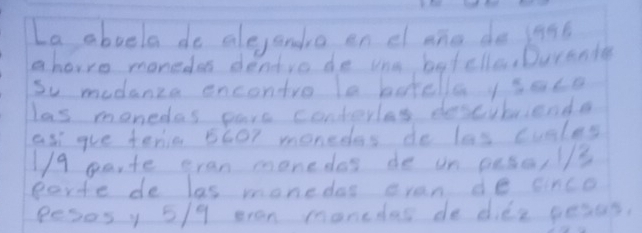 La abuela de alejandro en el año de 1996
ahorro monedas dentro de una botella. Durante
Su mudanza encontro la botella y saco
las monedas para contarlas descubriendo
asi que tenia 5607 monedas de las cuales
1/9 parte eran monedas de un peso, 1/3
parte de las monedas eran de cinco
pesos y 5/9 eran monedas de diez pesos.